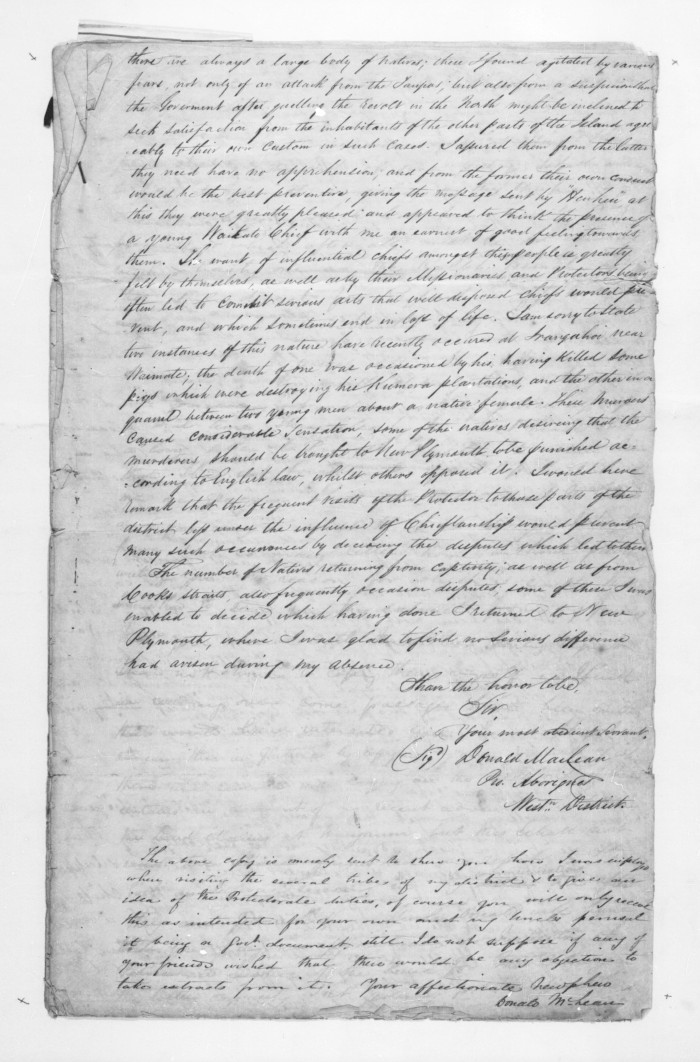 there are always a large body of natives; these I found agitated by various
fears, not only of an attack from the Taupos, but also from a suspicion that
the Goverment after quelling the revolt in the North might be inclined to
seek satisfaction from the inhabitants of the other parts of the Island agre-
-eably to their own Custom in such Cases. I assured them from the latter
they need have no apprehension, and from the former their own conduct
would be the best preventive, giving the message sent by "Heuheu" at
this they were greatly pleased and appeared to think the presence of
a young Waikato Chief with me an earnest of good feeling towards
them. The want of influential chiefs amongst these people is greatly
felt by themselves, as well as by their Missionaries and Protectors being
often led to commit serious acts that well disposed chiefs would pre-
vent, and which sometimes end in loss of life. I am sorry to state
two instances of this nature have recently occured at near
Waimate; the death of one was occasioned by his having killed some
pigs which were destroying his kumera plantations, and the other in a
quarrel between two young men about a native female. These murders
caused considerable sensation, some of the natives desiring that the
murderers should be brought to New Plymouth to be punished ac-
-cording to English law, whilst others opposed it. I would here
remark that the frequent visits of the Protector to those parts of the
district less under the influence of Chieftanship would prevent
many such occurances by deciding the disputes which led to them
The number of Natives returning from captivity, as well as from
Cooks Straits, also frequently occasion disputes, some of these I was
enabled to decide which having done I returned to New
Plymouth, where I was glad to find no serious difference
had arisen during my absence.
I have the honor to be,
Sir,
Your most obedient Servant,
(Sigd) Donald MacLean
Pro. Aborigines
Westn District.
The above copy is merely sent to shew you how I was employed
when visiting the several tribes of my district & to give an
idea of the Protectorate duties, of course you will only receive
this as intended for your own and my uncles perusal
it being a Govt. document, still I do not suppose if any of
your friends wished that there would be any objection to
take extracts from it. Your affectionate Newphew
Donald McLean